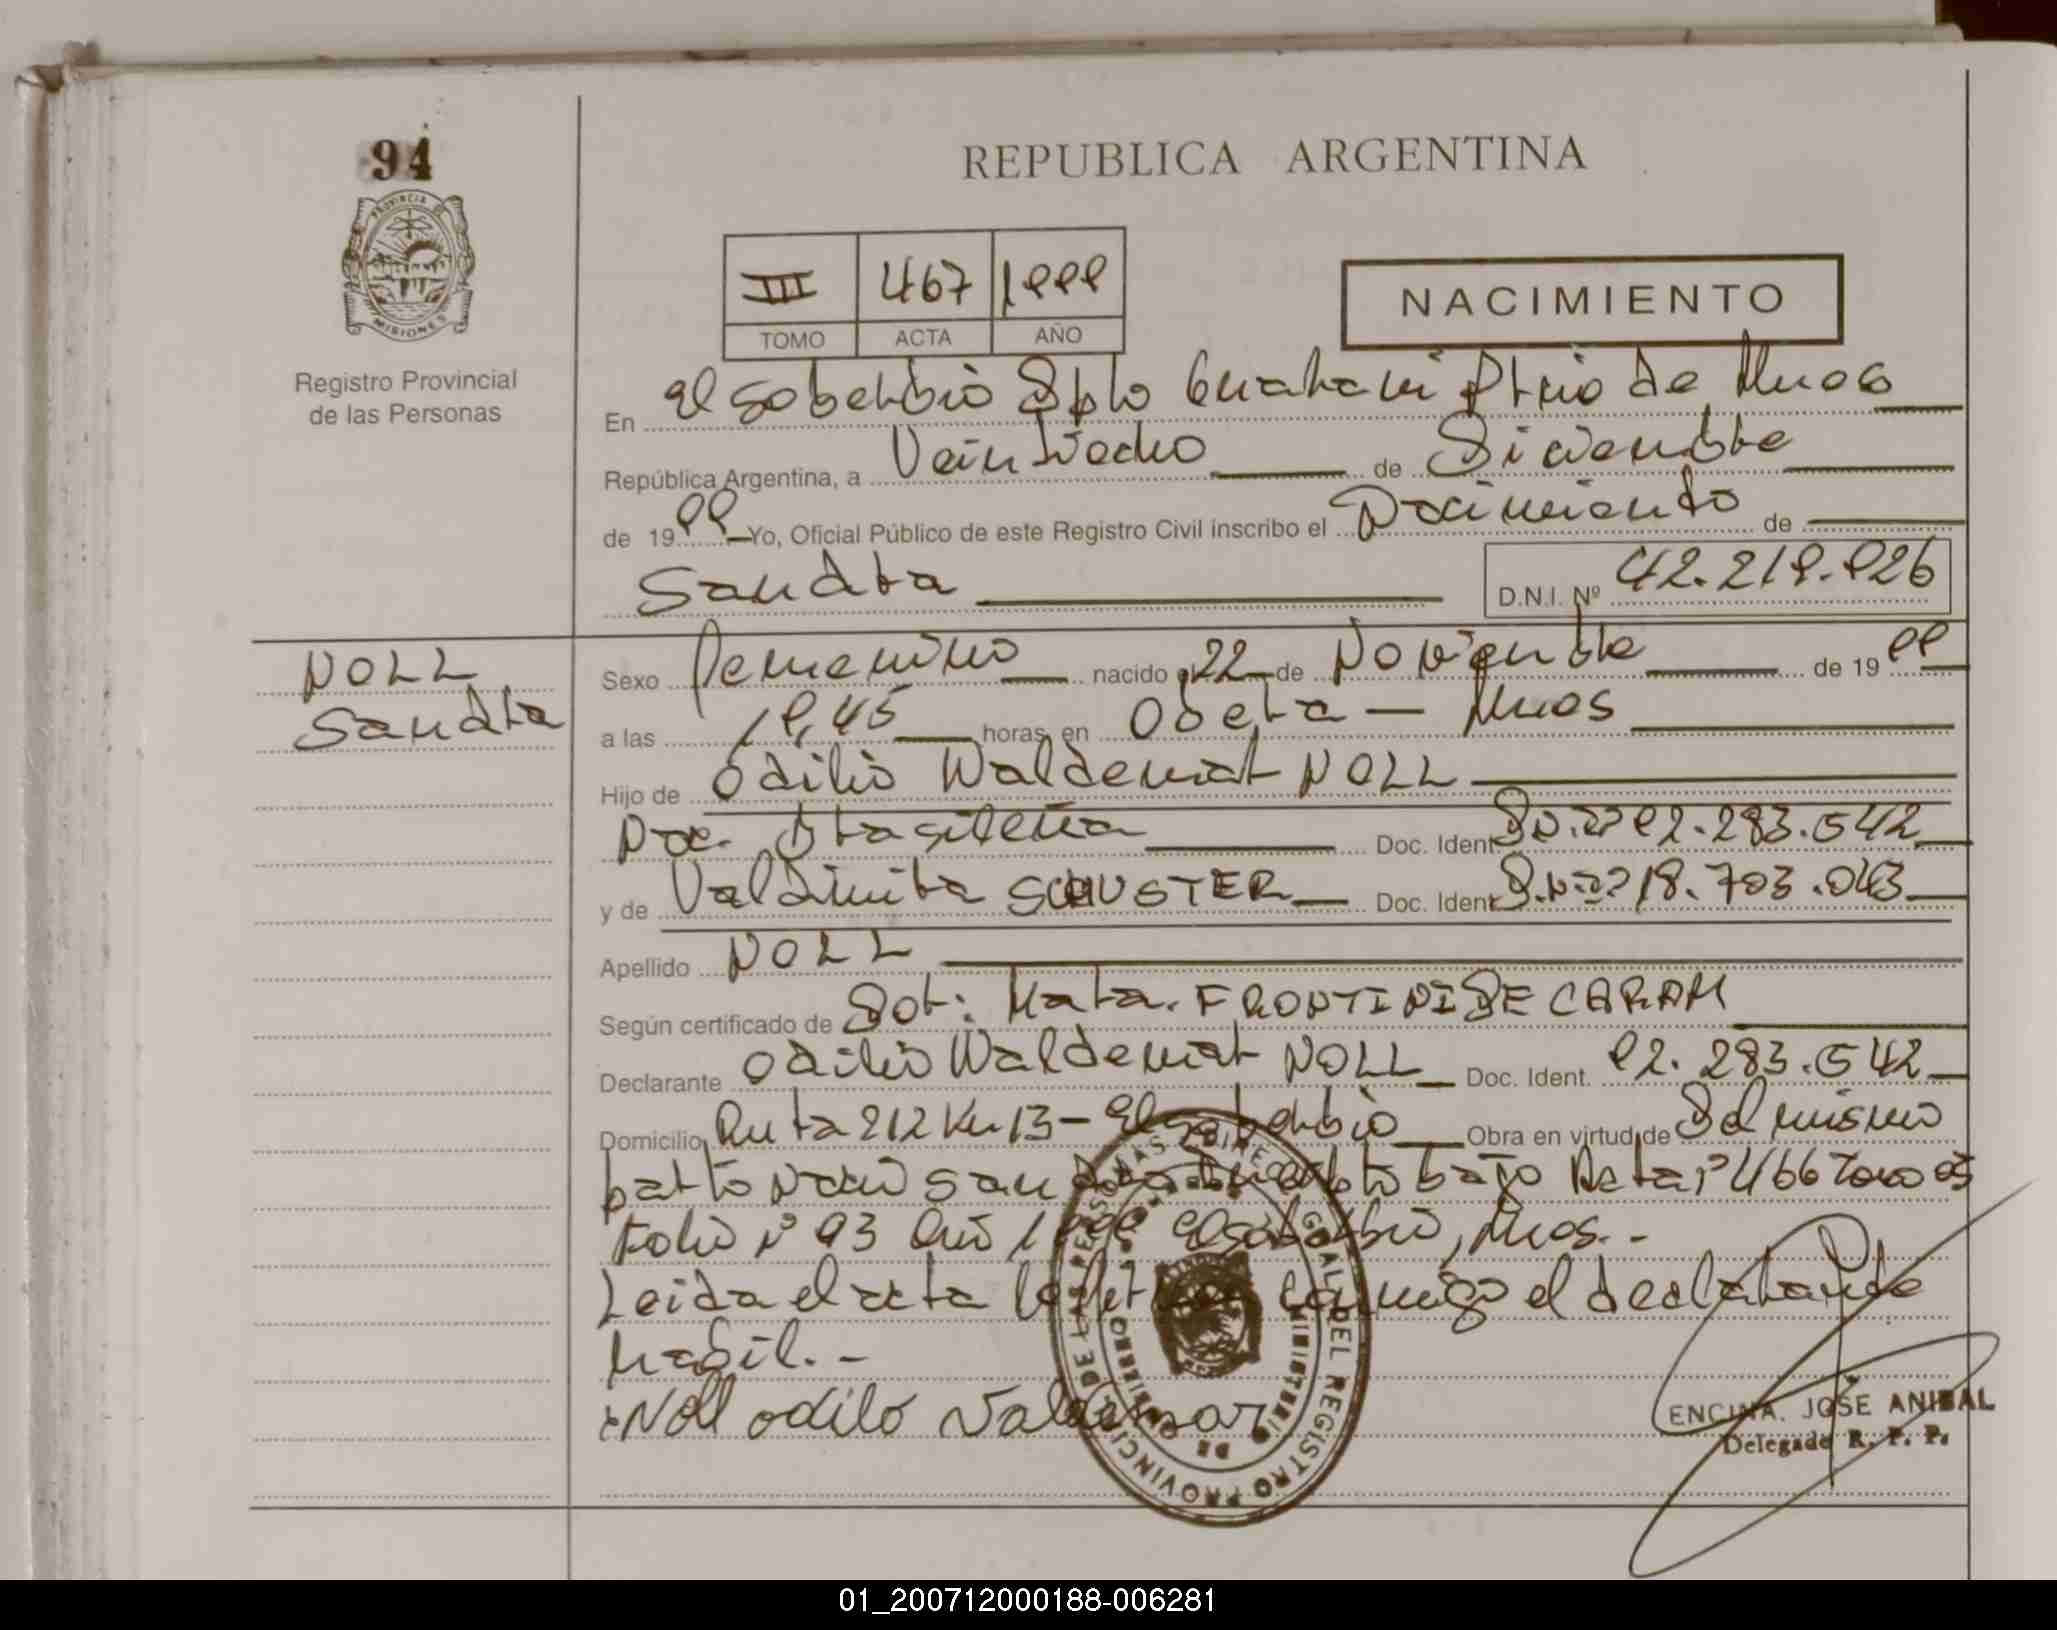 94
REPUBLICA ARGENTINA
PROVINCIA DE
MISIONES
Registro Provincial
de las Personas
III 467 1999
TOMO ACTA AÑO
NACIMIENTO
En El Soberbio Dpto Guarani Ptcio de Mnes
República Argentina, a Veintiocho de Diciembre
de 1999 Yo, Oficial Público de este Registro Civil inscribo el Nacimiento de
Sandra D.N.I. Nº 42.219.926
NOLL
Sandra
Sexo Femenino nacido el 22 de Noviembre de 1999
a las 19,45 horas, en Obera - Mnes
Hijo de Odilio Waldemar NOLL
Nac. Brasileña Doc. Ident. D.N.I. 92.283.542
y de Valdmira SCHUSTER Doc. Ident. D.N.I. 18.703.043
Apellido NOLL
Según certificado de Dot: Mara. FRONTINI DE CARAM
Declarante Odilio Waldemar NOLL Doc. Ident. 92.283.542
Domicilio Ruta 212 Km 13 - El Soberbio Obra en virtud de Del mismo
parto nació bajo Acta nº 466 Tomo 03
Folio nº 93 Año 1999 El Soberbio, Mnes.-
Leida el acta conmigo el declarante
habil.-
Noll odilo Valdemar
DIREC. GRAL DEL REGISTRO PROVINCIAL DE LAS PERSONAS
MINISTERIO DE GOBIERNO
ENCINA. JOSE ANIBAL
Delegado R. P. P.
01_200712000188-006281